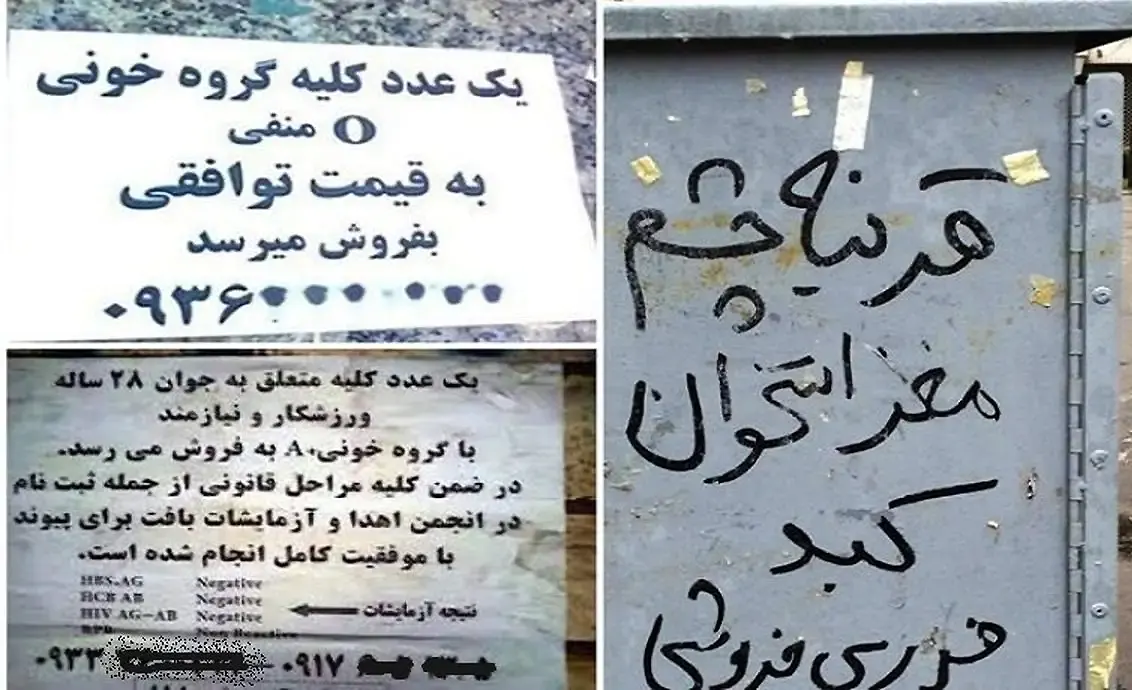 یک عدد کلیه گروه خونی
O منفی
به قیمت توافقی
بفروش میرسد
۰۹۳۶
یک عدد کلیه متعلق به جوان ۲۸ ساله
ورزشکار و نیازمند
با گروه خونی A+ به فروش می رسد.
در ضمن کلیه مراحل قانونی از جمله ثبت نام
در انجمن اهدا و آزمایشات بافت برای پیوند
با موفقیت کامل انجام شده است.
HBS.AG Negative
HCB AB Negative
HIV AG-AB Negative
نتیجه آزمایشات
RPR Non Reactive
۰۹۳۳ -۰۹۱۷
قرنیه چشم
مغز استخوان
کبد
فوری فروشی